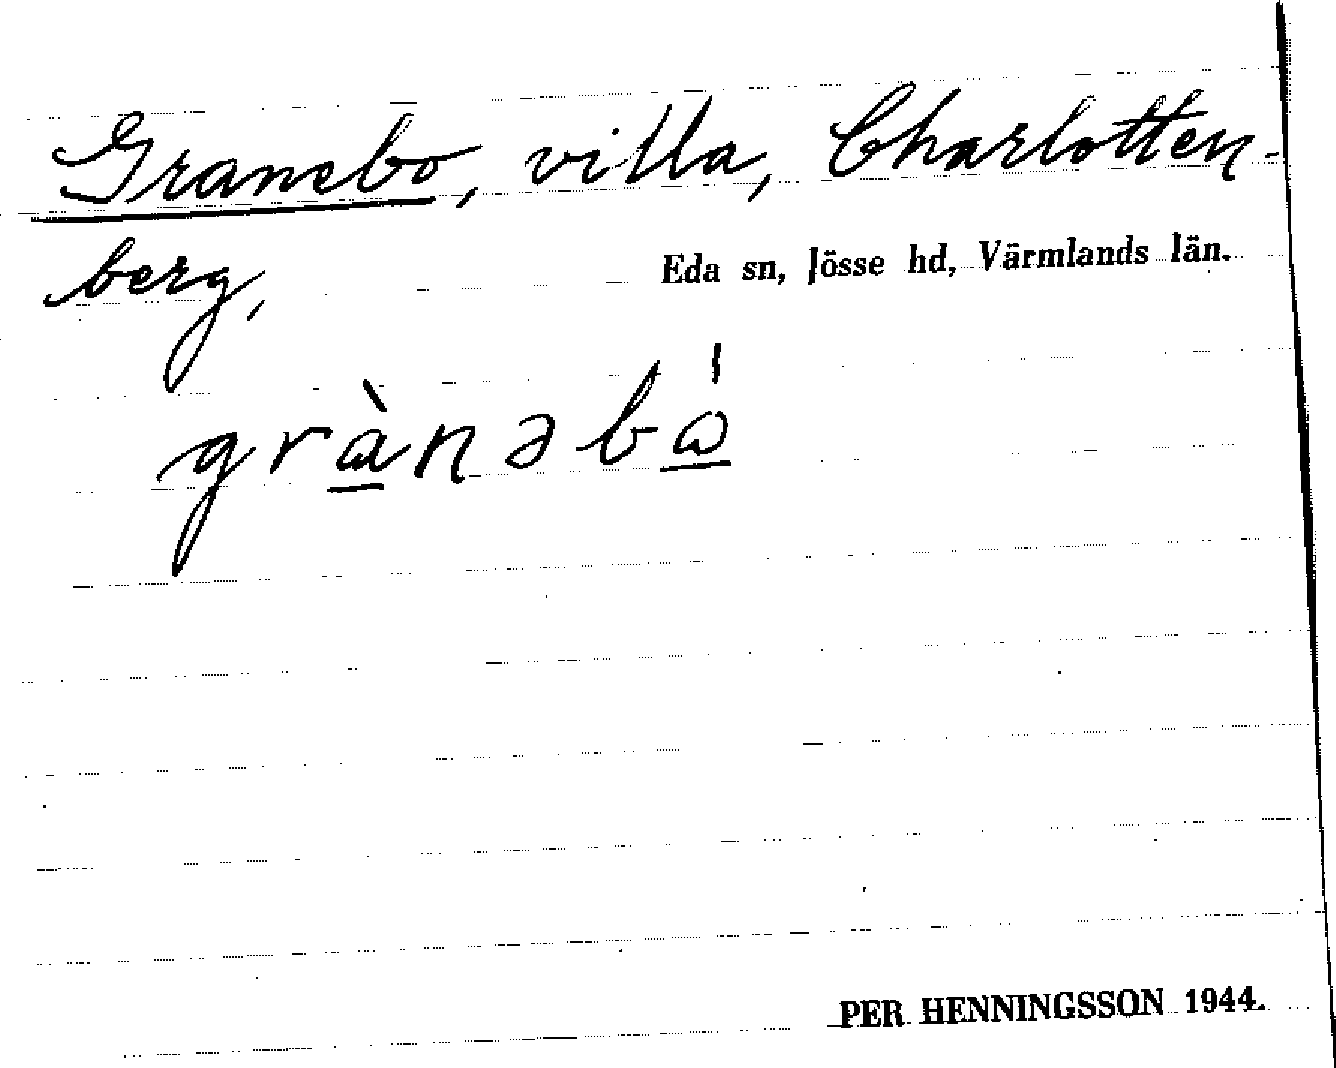 Granebo, villa, Charlotten-
berg,
Eda sn, Jösse hd, Värmlands län.
grànəbó
PER HENNINGSSON 1944.